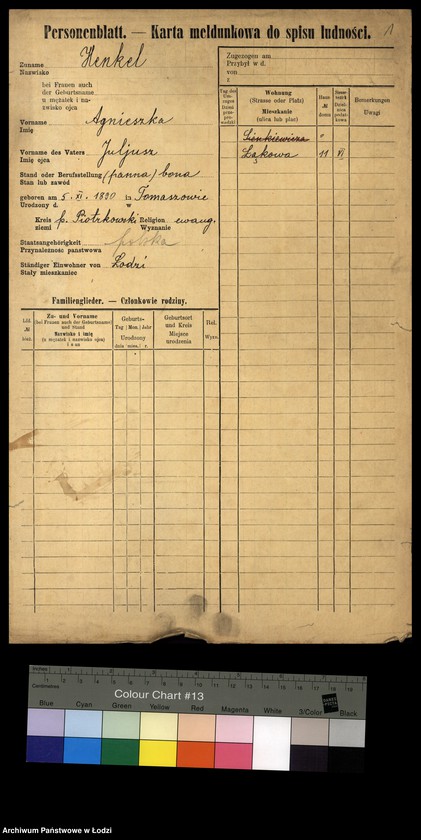 Personenblatt. — Karta meldunkowa do spisu ludności.
1
Zuname Henkel
Nazwisko
bei Frauen auch
der Geburtsname
u mężatek i na-
zwisko ojca
Vorname Agnieszka
Imię
Vorname des Vaters Juljusz
Imię ojca
Stand oder Berufsstellung (panna) bona
Stan lub zawód
geboren am 5. XI. 1890 in Tomaszowie
Urodzony d. w
Kreis p. Piotrkowski Religion ewang.
ziemi Wyznanie
Staatsangehörigkeit polska
Przynależność państwowa
Ständiger Einwohner von Łodzi
Stały mieszkaniec
Zugezogen am
Przybył w d.
von
z
Tag des
Wohnung
(Strasse oder Platz)
Mieszkanie
(ulica lub plac)
Haus
№
domu
Bemerkungen
Uwagi
Sienkiewicza
Łąkowa 11 VI
Familienglieder. — Członkowie rodziny.
Lfd.
№
Zu- und Vorname
(bei Frauen auch der Geburtsname)
und Stand
Nazwisko i imię
(u mężatek i nazwisko ojca)
Geburts-
Tag | Mon. | Jahr
Urodzony
dnia | r.
Geburtsort
und Kreis
Miejsce
urodzenia
Rel.
Wyzn.
Inches
Centimetres
Colour Chart #13
Blue Cyan Green Yellow Red Magenta White 3/Color Black
Archiwum Państwowe w Łodzi